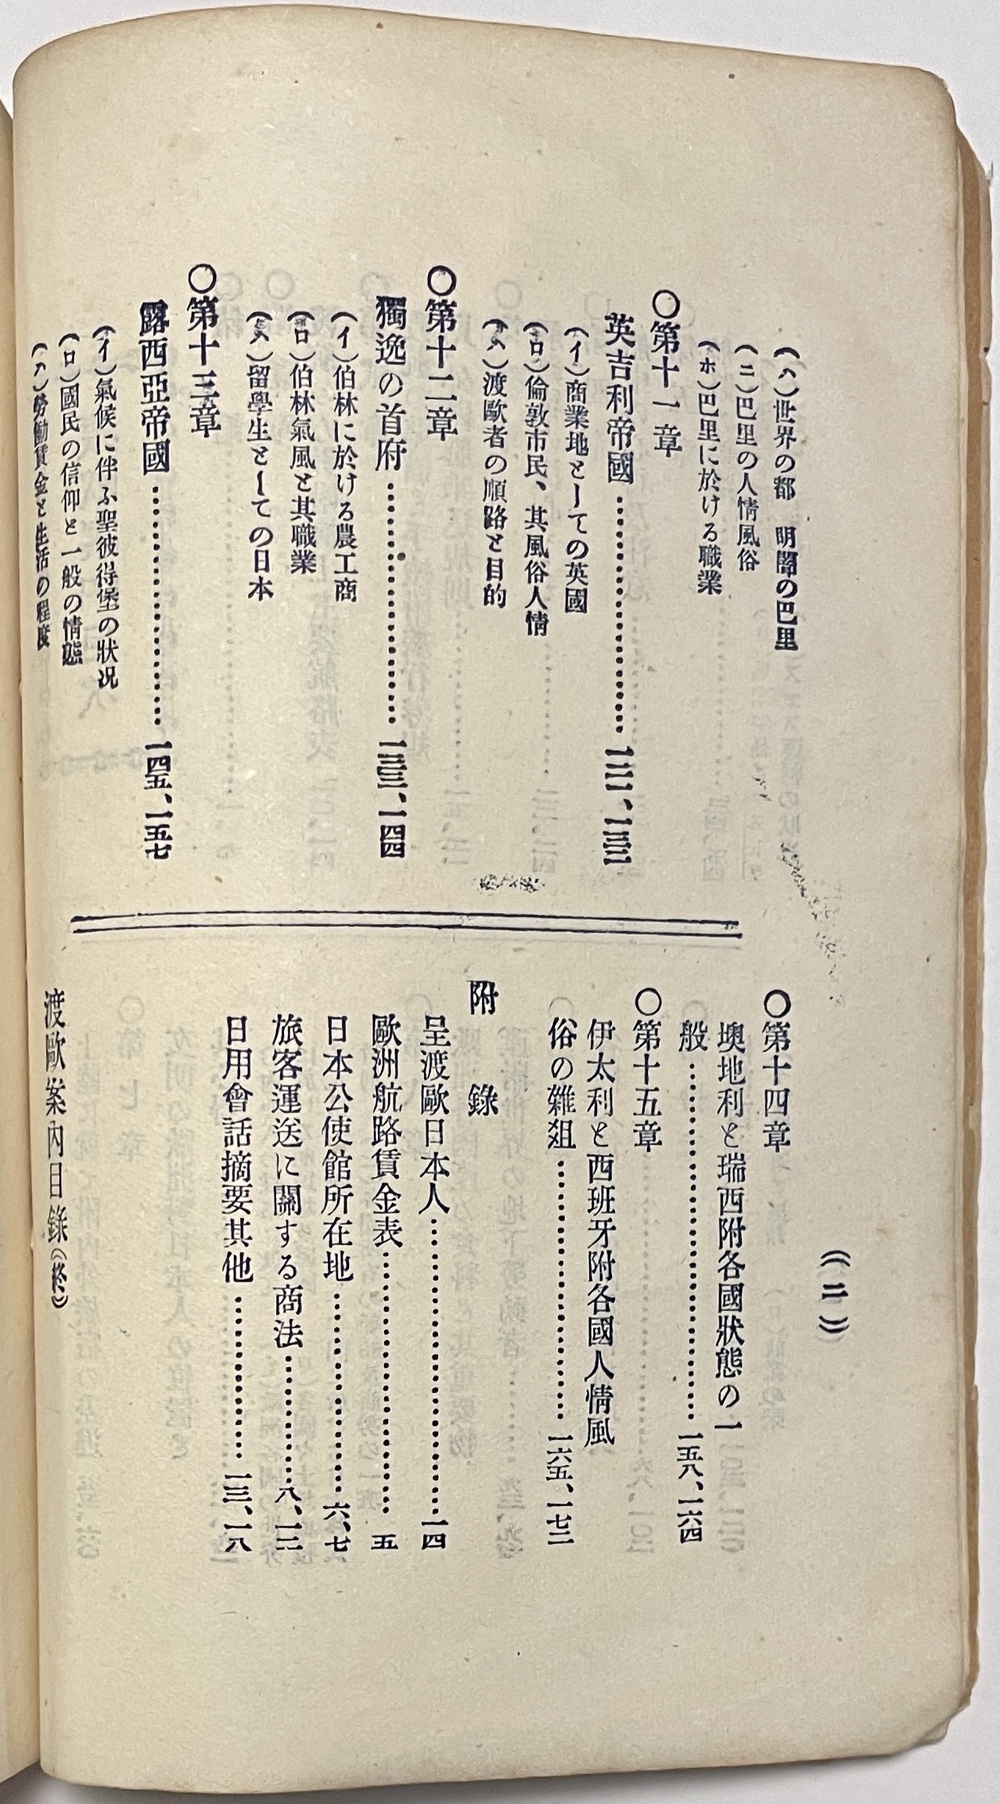 (二)
(ハ)世界の都　明闇の巴里
(ニ)巴里の人情風俗
(ホ)巴里に於ける職業
○第十一章
英吉利帝國……………一二一、一三二
(イ)商業地としての英國
(ロ)倫敦市民、其風俗人情
(ハ)渡歐者の順路と目的
○第十二章
獨逸の首府……………一三三、一四四
(イ)伯林に於ける農工商
(ロ)伯林氣風と其職業
(ハ)留學生としての日本
○第十三章
露西亞帝國……………一四五、一五七
(イ)氣候に伴ふ聖彼得堡の狀況
(ロ)國民の信仰と一般の情態
(ハ)勞働賃金と生活の程度
○第十四章
墺地利と瑞西附各國狀態の一
般……………一五八、一六四
○第十五章
伊太利と西班牙附各國人情風
俗の雜爼……………一六五、一七二
附　錄
呈渡歐日本人……………一四
歐洲航路賃金表……………五
日本公使館所在地……………六、七
旅客運送に關する商法……………八、一二
日用會話摘要其他……………一三、一八
渡歐案內目錄(終)